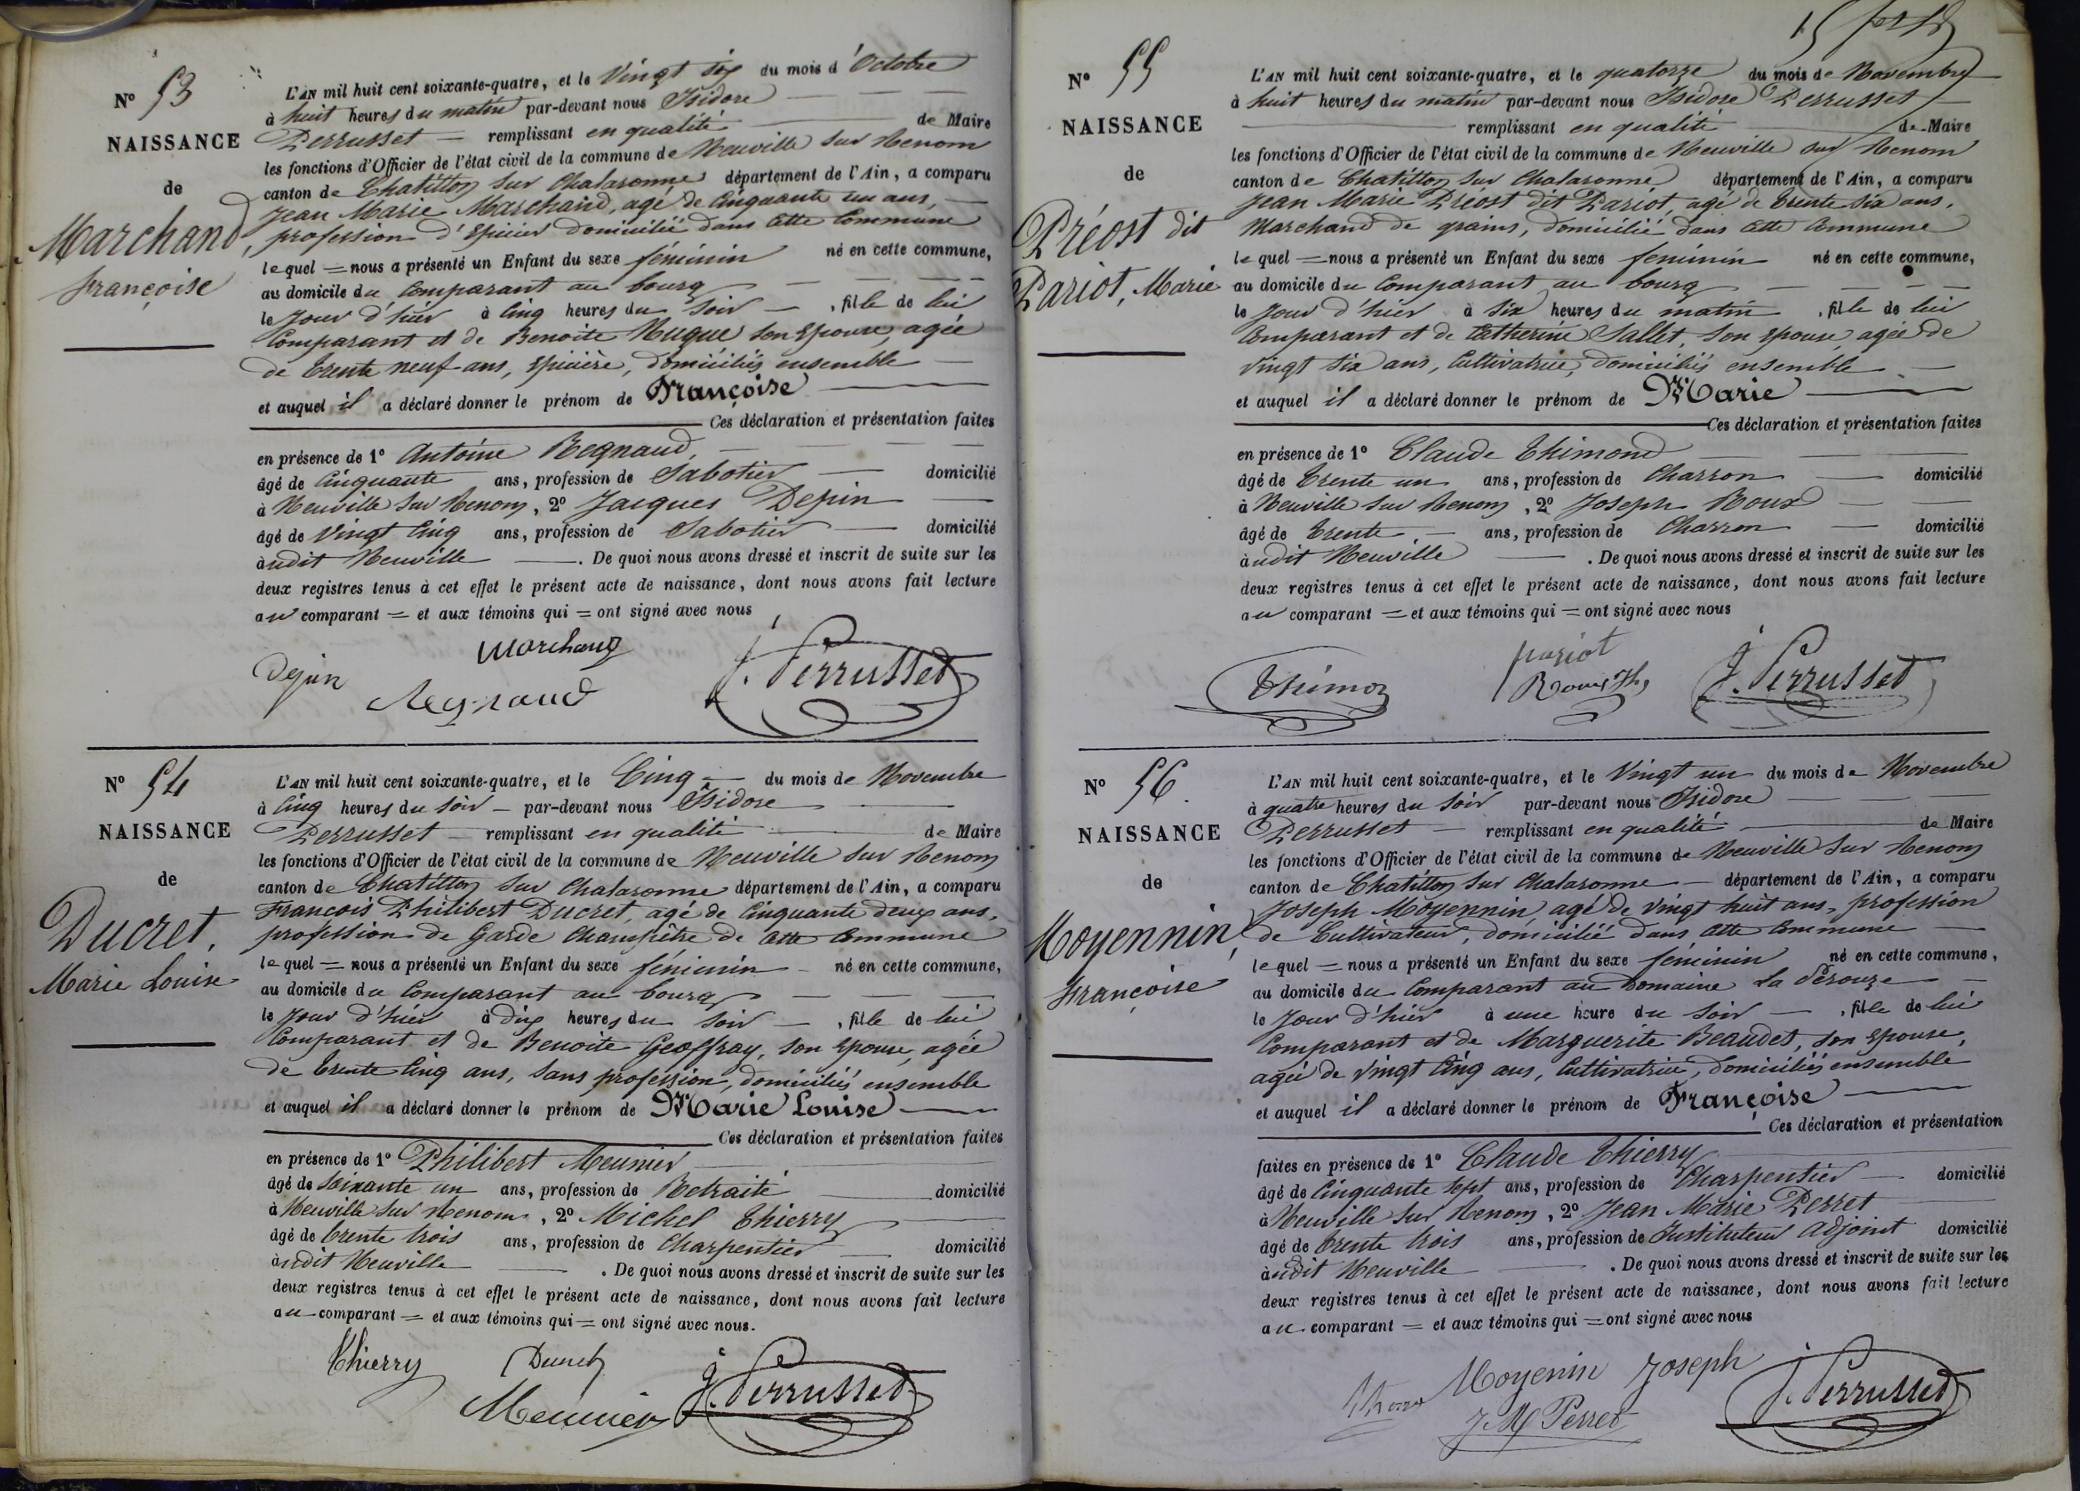 Nº 53
NAISSANCE
de
Marchand,
Françoise
L'AN mil huit cent soixante-quatre, et le Vingt six du mois d'Octobre
à huit heures du matin par-devant nous Isidore
Perrusset remplissant en qualité de Maire
les fonctions d'Officier de l'état civil de la commune de Neuville sur Renom
canton de Chatillon sur Chalaronne département de l'Ain, a comparu
Jean Marie Marchand, agé de Cinquante un ans,
profession d'Epicier domicilié dans cette Commune
lequel = nous a présenté un Enfant du sexe féminin né en cette commune,
au domicile du Comparant au bourg
le Jour d'hier à Cinq heures du Soir, fille de lui
Comparant et de Benoite Nugue son Epouse, agée
de Trente neuf ans, Epicière, domiciliés ensemble
et auquel il a déclaré donner le prénom de Françoise
Ces déclaration et présentation faites
en présence de 1º Antoine Regnaud,
âgé de Cinquante ans, profession de Sabotier domicilié
à Neuville sur Renom, 2º Jacques Depin
âgé de Vingt Cinq ans, profession de Sabotier domicilié
audit Neuville. De quoi nous avons dressé et inscrit de suite sur les
deux registres tenus à cet effet le présent acte de naissance, dont nous avons fait lecture
au comparant = et aux témoins qui = ont signé avec nous
Marchand
Depin
Regnaud
J. Perrusset
Nº 54
NAISSANCE
de
Ducret,
Marie Louise
L'AN mil huit cent soixante-quatre, et le Cinq du mois de Novembre
à Cinq heures du soir par-devant nous Isidore
Perrusset remplissant en qualité de Maire
les fonctions d'Officier de l'état civil de la commune de Neuville sur Renom
canton de Chatillon sur Chalaronne département de l'Ain, a comparu
François Philibert Ducret, agé de Cinquante deux ans,
profession de Garde Champêtre de cette Commune
lequel = nous a présenté un Enfant du sexe féminin né en cette commune,
au domicile du Comparant au bourg
le Jour d'hier à dix heures du Soir, fille de lui
Comparant et de Benoite Geoffray, son Epouse, agée
de Trente Cinq ans, Sans profession, domiciliés ensemble
et auquel il a déclaré donner le prénom de Marie Louise
Ces déclaration et présentation faites
en présence de 1º Philibert Meunier
âgé de Soixante un ans, profession de Retraité domicilié
à Neuville sur Renom, 2º Michel Thierry
âgé de Trente trois ans, profession de Charpentier domicilié
audit Neuville. De quoi nous avons dressé et inscrit de suite sur les
deux registres tenus à cet effet le présent acte de naissance, dont nous avons fait lecture
au comparant = et aux témoins qui = ont signé avec nous.
Thierry
Ducret
Meunier
J. Perrusset
Nº 55
NAISSANCE
de
Préost dit
Pariot, Marie
L'AN mil huit cent soixante-quatre, et le quatorze du mois de Novembre
à huit heures du matin par-devant nous Isidore Perrusset
remplissant en qualité de Maire
les fonctions d'Officier de l'état civil de la commune de Neuville sur Renom
canton de Chatillon sur Chalaronne département de l'Ain, a comparu
Jean Marie Préost dit Pariot agé de Trente Six ans,
Marchand de grains, domicilié dans cette Commune
lequel = nous a présenté un Enfant du sexe féminin né en cette commune,
au domicile du Comparant au bourg
le Jour d'hier à Six heures du matin, fille de lui
Comparant et de Catherine Sallet, Son Epouse, agée de
Vingt Six ans, Cultivatrice, domiciliés ensemble
et auquel il a déclaré donner le prénom de Marie
Ces déclaration et présentation faites
en présence de 1º Claude Thimond
âgé de Trente un ans, profession de Charron domicilié
à Neuville sur Renom, 2º Joseph Roux
âgé de Trente ans, profession de Charron domicilié
audit Neuville. De quoi nous avons dressé et inscrit de suite sur les
deux registres tenus à cet effet le présent acte de naissance, dont nous avons fait lecture
au comparant = et aux témoins qui = ont signé avec nous
pariot
Roux Jh
J. Perrusset
Nº 56.
NAISSANCE
de
Moyennin,
Françoise
L'AN mil huit cent soixante-quatre, et le Vingt un du mois de Novembre
à quatre heures du Soir par-devant nous Isidore
Perrusset remplissant en qualité de Maire
les fonctions d'Officier de l'état civil de la commune de Neuville sur Renom
canton de Chatillon sur Chalaronne département de l'Ain, a comparu
Joseph Moyennin agé de Vingt huit ans, profession
de Cultivateur, domicilié dans cette Commune
lequel = nous a présenté un Enfant du sexe féminin né en cette commune,
au domicile du Comparant au Domaine La Pérouze
le Jour d'hier à une heure du Soir, fille de lui
Comparant et de Marguerite Beaudet, son Epouse,
agée de Vingt Cinq ans, Cultivatrice, domiciliés ensemble
et auquel il a déclaré donner le prénom de Françoise
Ces déclaration et présentation
faites en présence de 1º Claude Thierry
âgé de Cinquante sept ans, profession de Charpentier domicilié
à Neuville sur Renom, 2º Jean Marie Perret
âgé de Trente trois ans, profession de Instituteur Adjoint domicilié
audit Neuville. De quoi nous avons dressé et inscrit de suite sur les
deux registres tenus à cet effet le présent acte de naissance, dont nous avons fait lecture
au comparant = et aux témoins qui = ont signé avec nous
Moyenin Joseph
J M Perret
J. Perrusset